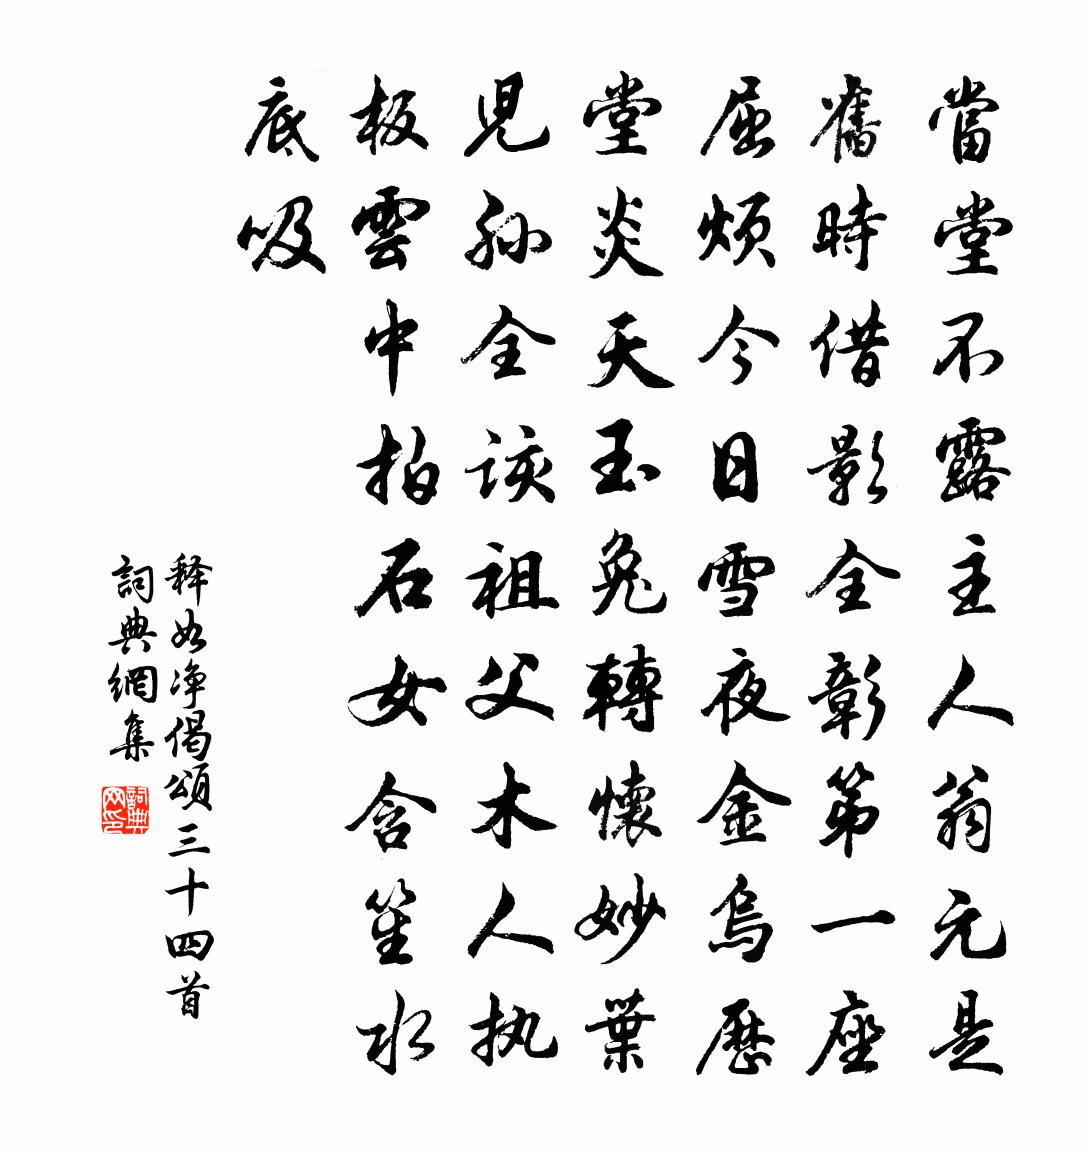 當堂不露主人翁元是
舊時借影全彰第一座
屈煩今日雪夜金烏歷
堂炎天玉兔轉懷妙葉
兒孫全該祖父木人执
板雲中拍石女含笙水
底吸
释如净偈頌三十四首
詞典網集
詞典网印